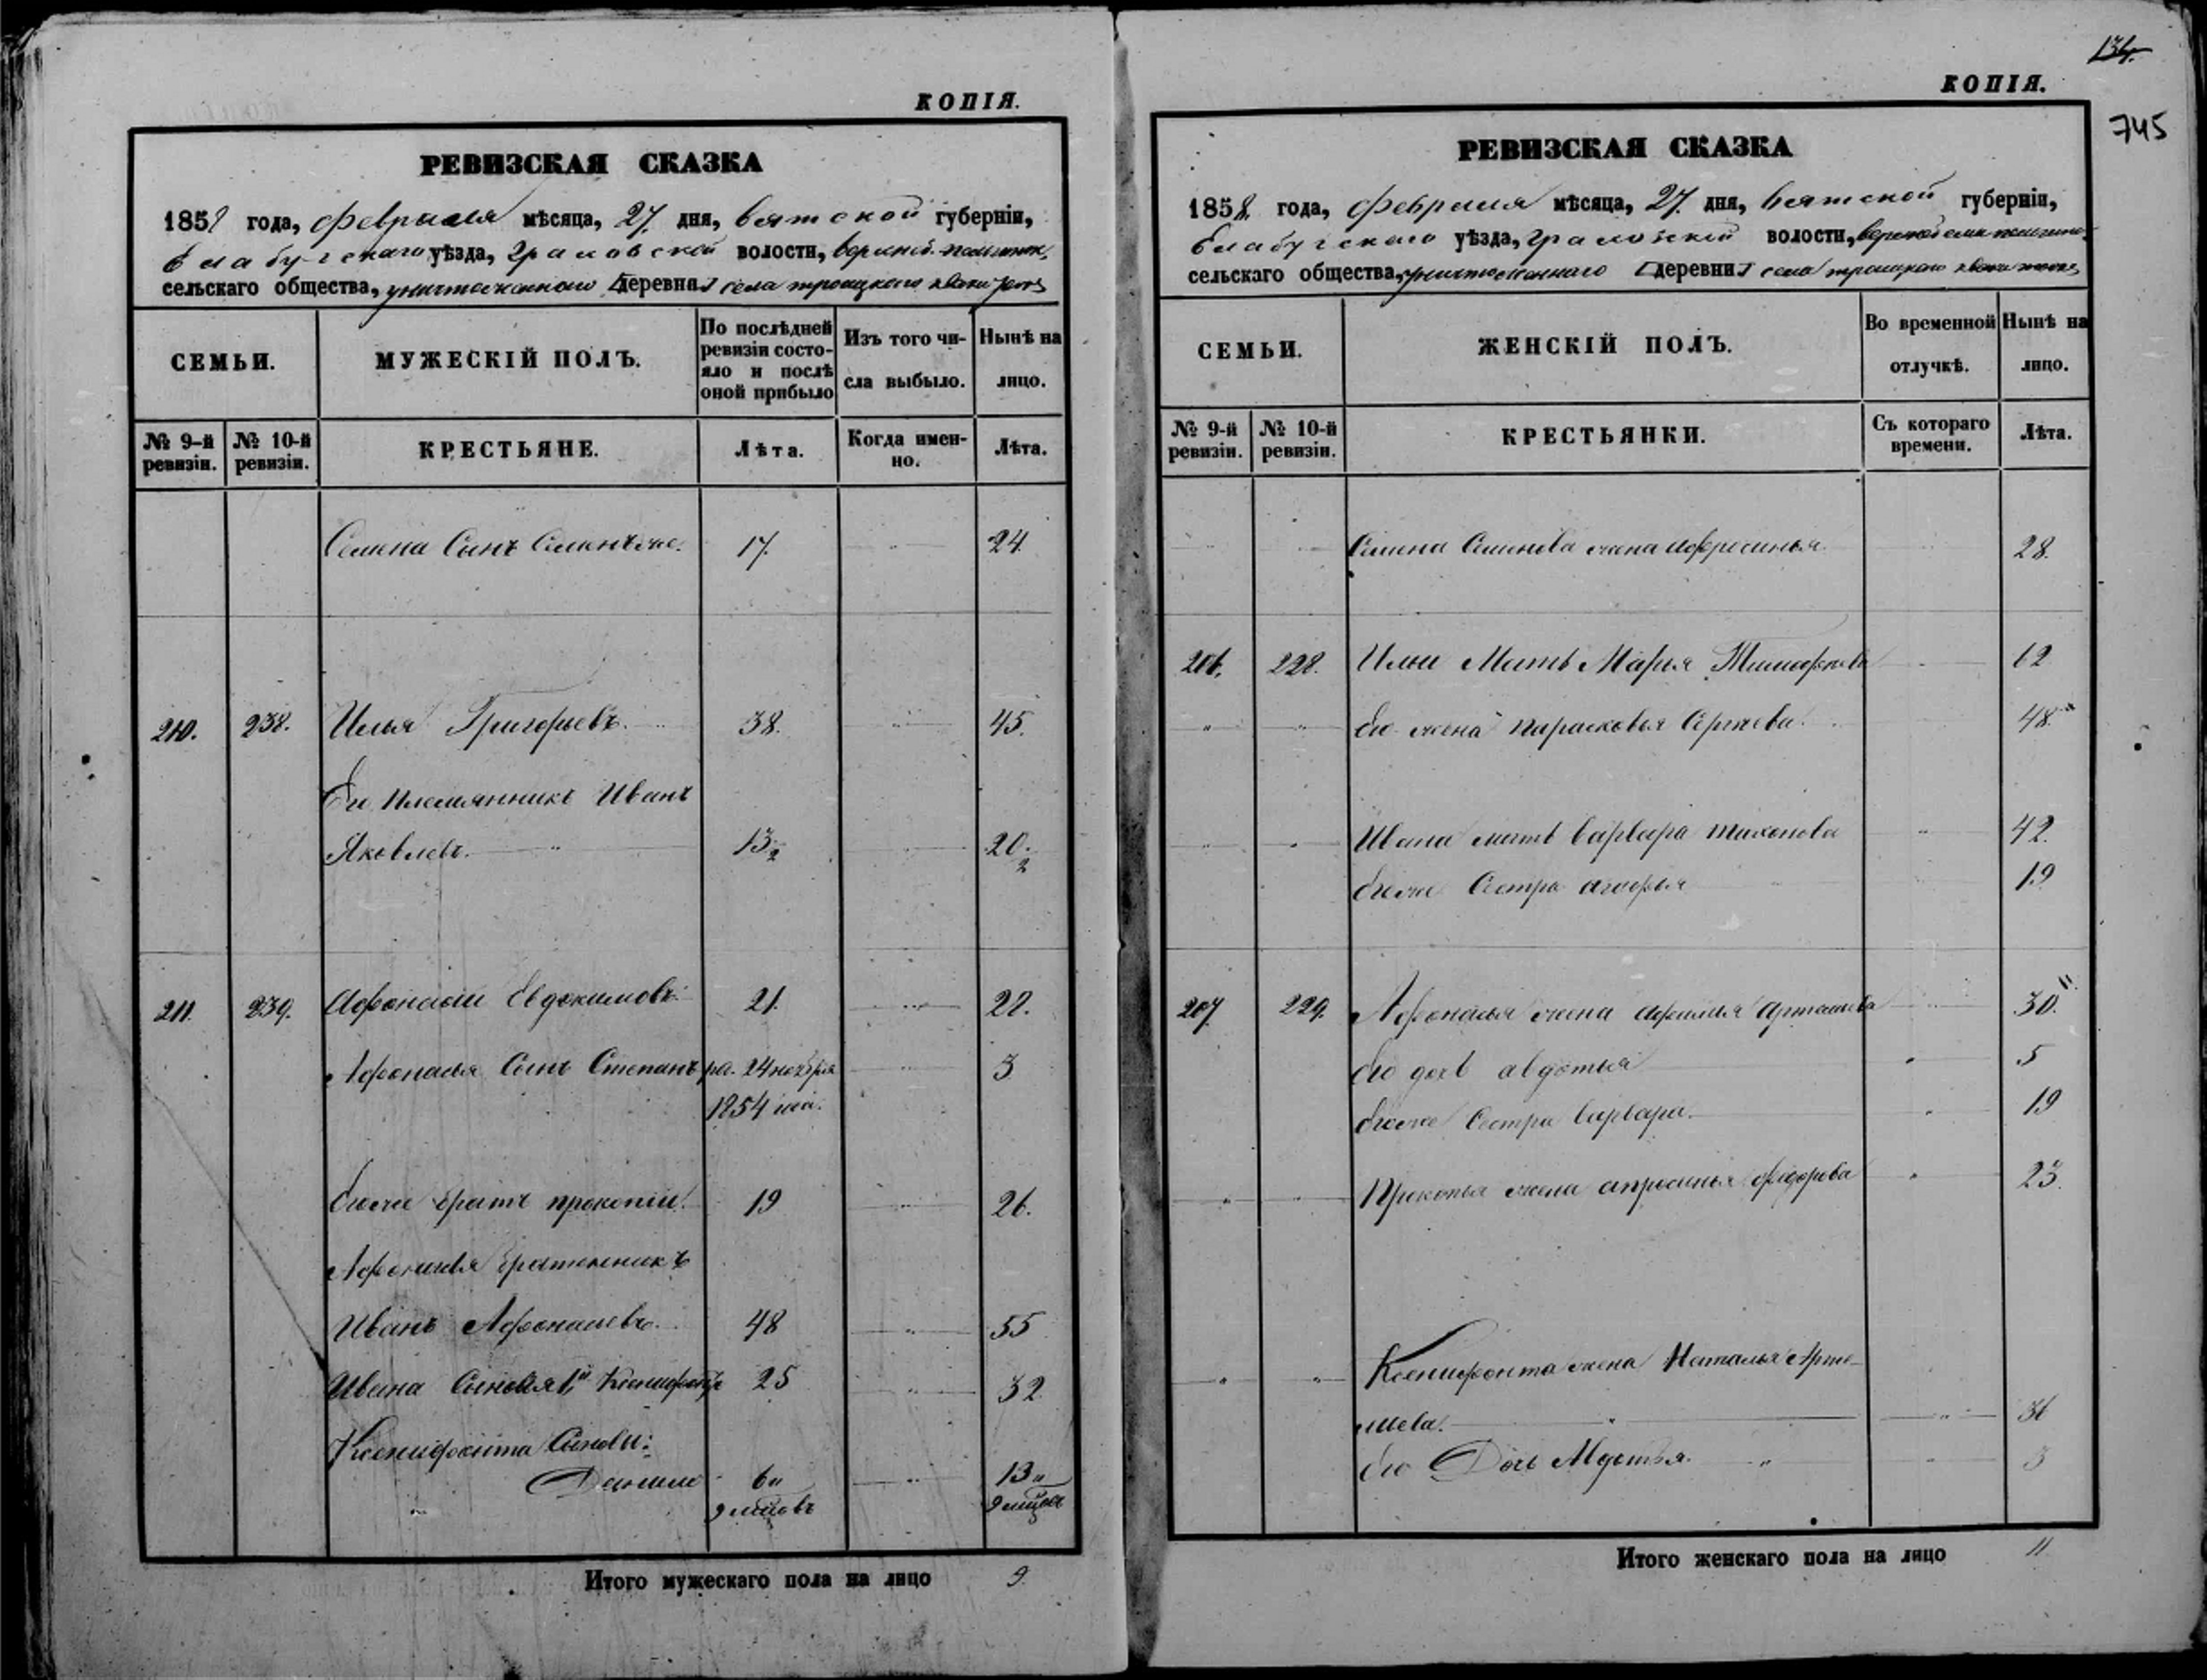 КОПІЯ.
РЕВИЗСКАЯ СКАЗКА
1858 года, февраля мѣсяца, 27. дня, вятской губерніи,
елабугскаго уѣзда, граховской волости,
сельскаго общества, деревни села троицкаго
СЕМЬИ.
МУЖЕСКІЙ ПОЛЪ.
По послѣдней ревизіи состо-
яло и послѣ оной прибыло
Изъ того чи-
сла выбыло.
Нынѣ на
лицо.
№ 9-й ревизіи.
№ 10-й ревизіи.
КРЕСТЬЯНЕ.
Лѣта.
Когда имен-
но.
Лѣта.
Семена Сынъ 17. 24.
210. 238. Илья Григорьевъ. 38. 45.
Его племянникъ Иванъ
Яковлевъ. 13 2 20. 2
211. 239. Афонасій Евдокимовъ 21. 28.
Афонасья Сынъ Степанъ ро. 24 ноября 3
1854 года.
Егоже братъ прокопій. 19 26.
Афонасья братенникъ
Иванъ Афонасьевъ. 48 55
Ивана Сыновья 1й Ксенифонтъ 25 32.
Ксенифонта Сынови:
Данило 6 и 13 и
9 мцовъ 9 мцовъ
Итого мужескаго пола на лицо 9.
134.
КОПІЯ.
745
РЕВИЗСКАЯ СКАЗКА
1858. года, февраля мѣсяца, 27. дня, вятской губерніи,
елабугскаго уѣзда, граховской волости,
сельскаго общества, деревни села троицкаго
СЕМЬИ.
ЖЕНСКІЙ ПОЛЪ.
Во временной
отлучкѣ.
Нынѣ на
лицо.
№ 9-й ревизіи.
№ 10-й ревизіи.
КРЕСТЬЯНКИ.
Съ котораго
времени.
Лѣта.
Семена Семенова жена Афросинья 28.
206. 228. Ильи Мать Марья Тимофеева 62
Его жена парасковья Сергеева. 48.
Ивана мать варвара тихонова 42.
Егоже Сестра агафья 19
207. 229. Афонасья жена Артамонова 30.
Его дочь авдотья 5
Егоже Сестра варвара. 19
Прокопья жена апросинья федорова 23.
Ксенифонта жена Наталья Арте-
мьева. 36
Его Дочь Авдотья. 3
Итого женскаго пола на лицо 11